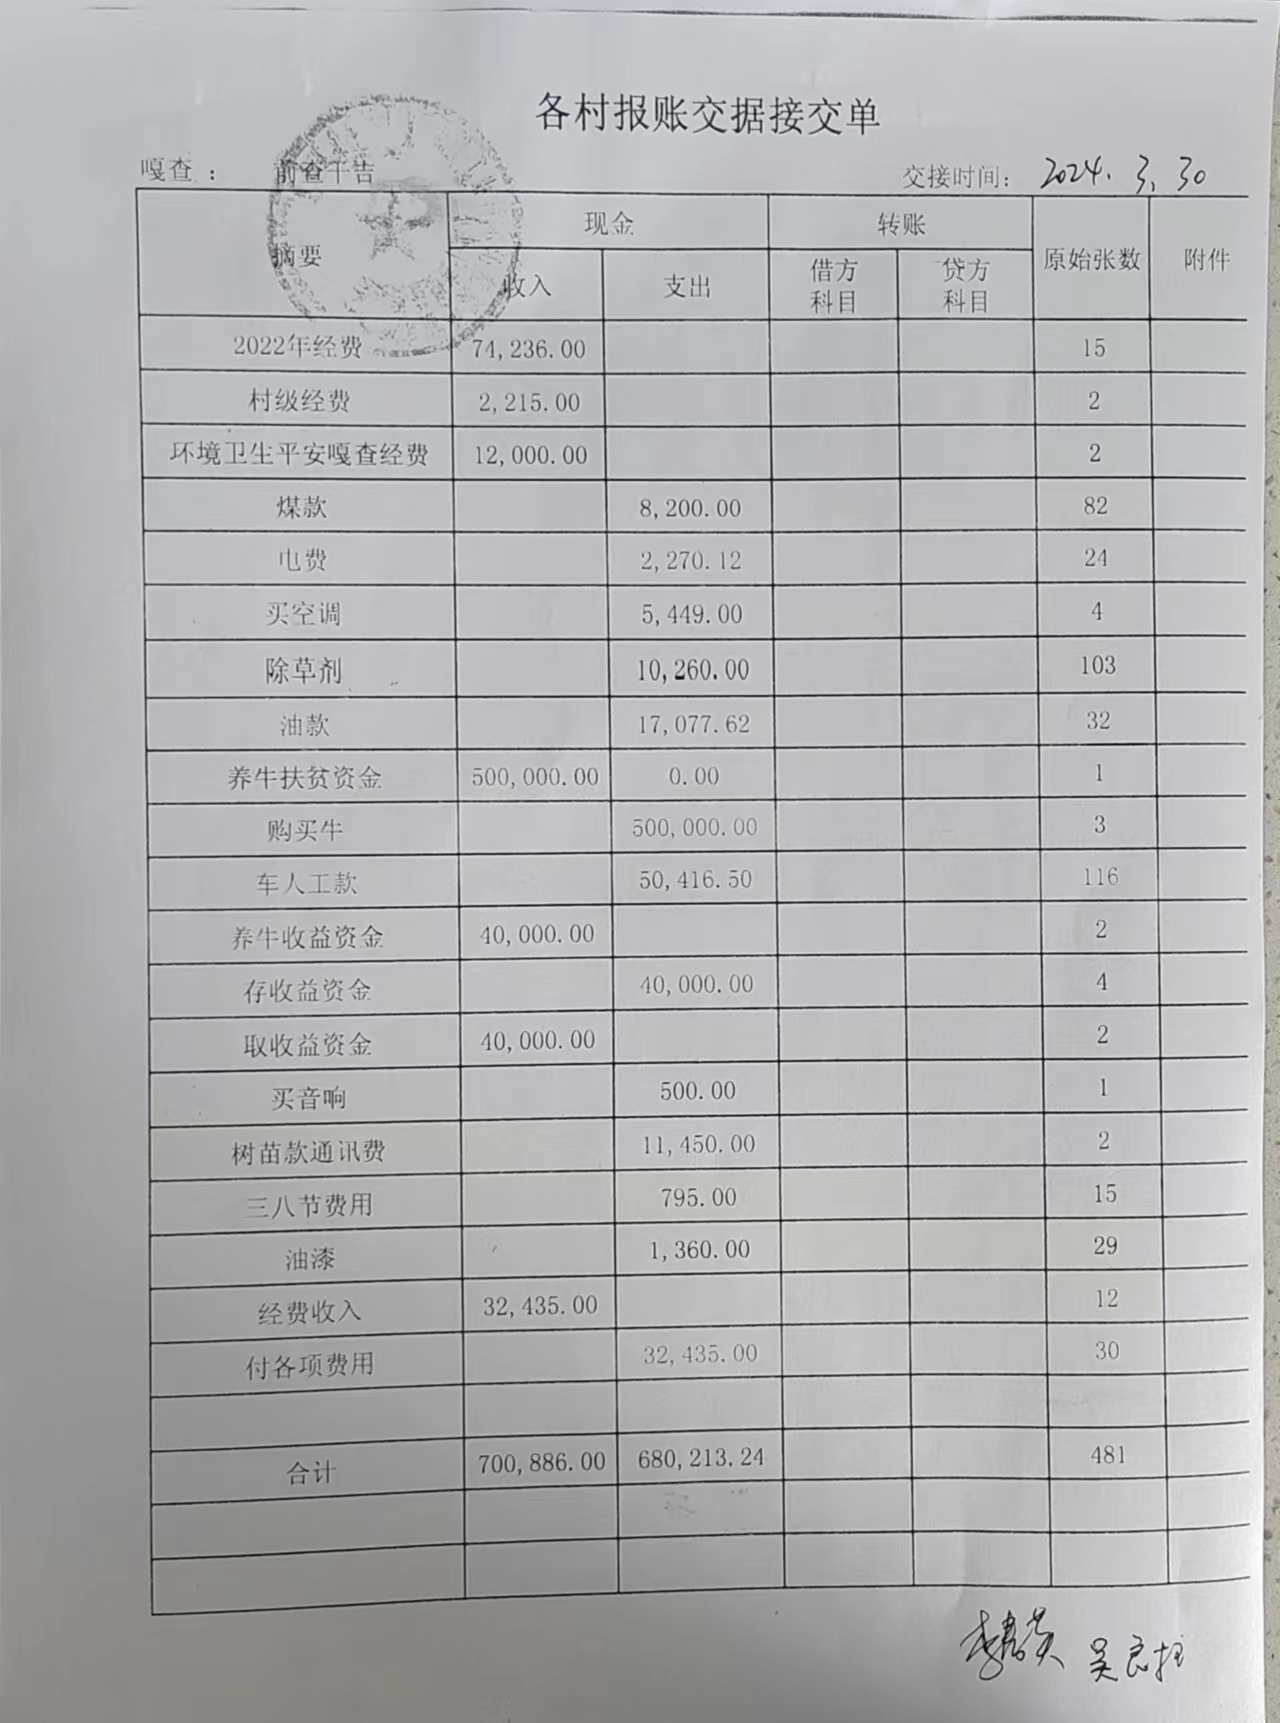 各村报账交据接交单
嘎查 ： 前查干吉 交接时间： 2024. 3. 30
摘要 现金 转账 原始张数 附件
收入 支出 借方科目 贷方科目
2022年经费 74,236.00 15
村级经费 2,215.00 2
环境卫生平安嘎查经费 12,000.00 2
煤款 8,200.00 82
电费 2,270.12 24
买空调 5,449.00 4
除草剂 10,260.00 103
油款 17,077.62 32
养牛扶贫资金 500,000.00 0.00 1
购买牛 500,000.00 3
车人工款 50,416.50 116
养牛收益资金 40,000.00 2
存收益资金 40,000.00 4
取收益资金 40,000.00 2
买音响 500.00 1
树苗款通讯费 11,450.00 2
三八节费用 795.00 15
油漆 1,360.00 29
经费收入 32,435.00 12
付各项费用 32,435.00 30
合计 700,886.00 680,213.24 481
吴良柱